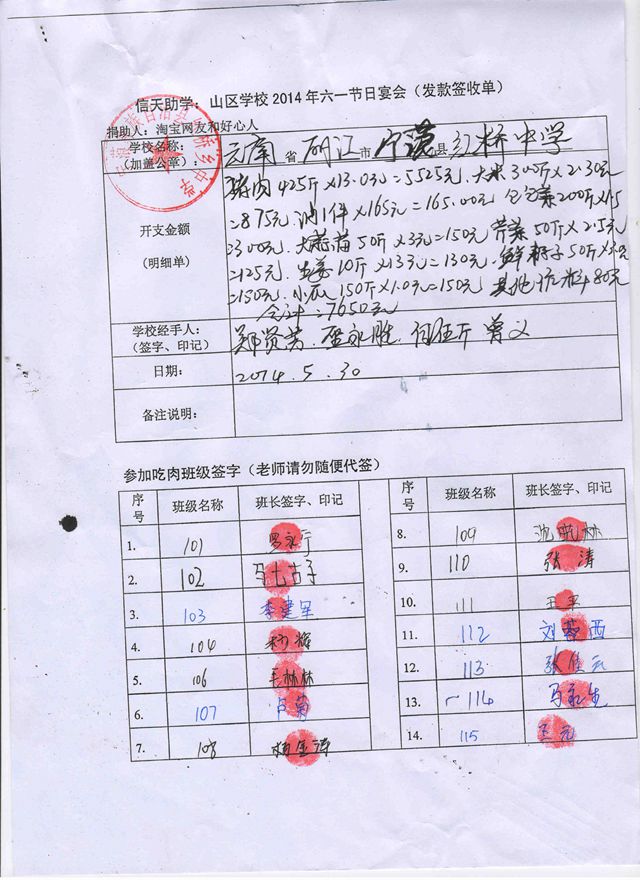 信天助学：山区学校2014年六一节日宴会（发款签收单）
捐助人：淘宝网友和好心人
学校名称：
（加盖公章）：
云南省丽江市宁蒗县红桥中学
开支金额
（明细单）
猪肉425斤×13.0元=5525元. 大米 350斤×2.30元
=875元. 油1件×165元=165.00元 200斤×1.5
=300元. 50斤×3元=150元 芹菜50斤×2.5元
=125元. 生姜10斤×13元=130元. 50斤×3.0元
=150元. 小瓜150斤×1.0元=150元 其他 80元
合计：7650元
学校经手人：
（签字、印记）
郑贤芳. 永胜. 曾义
日期：
2014.5.30
备注说明：
参加吃肉班级签字（老师请勿随便代签）
序号 班级名称 班长签字、印记
1. 101
2. 102 马七古子
3. 103 李建军
4. 104
5. 106 毛林林
6. 107 卢菊
7. 108 杨金涛
序号 班级名称 班长签字、印记
8. 109
9. 110 张涛
10. 111 王平
11. 112
12. 113
13. 114
14. 115 王元